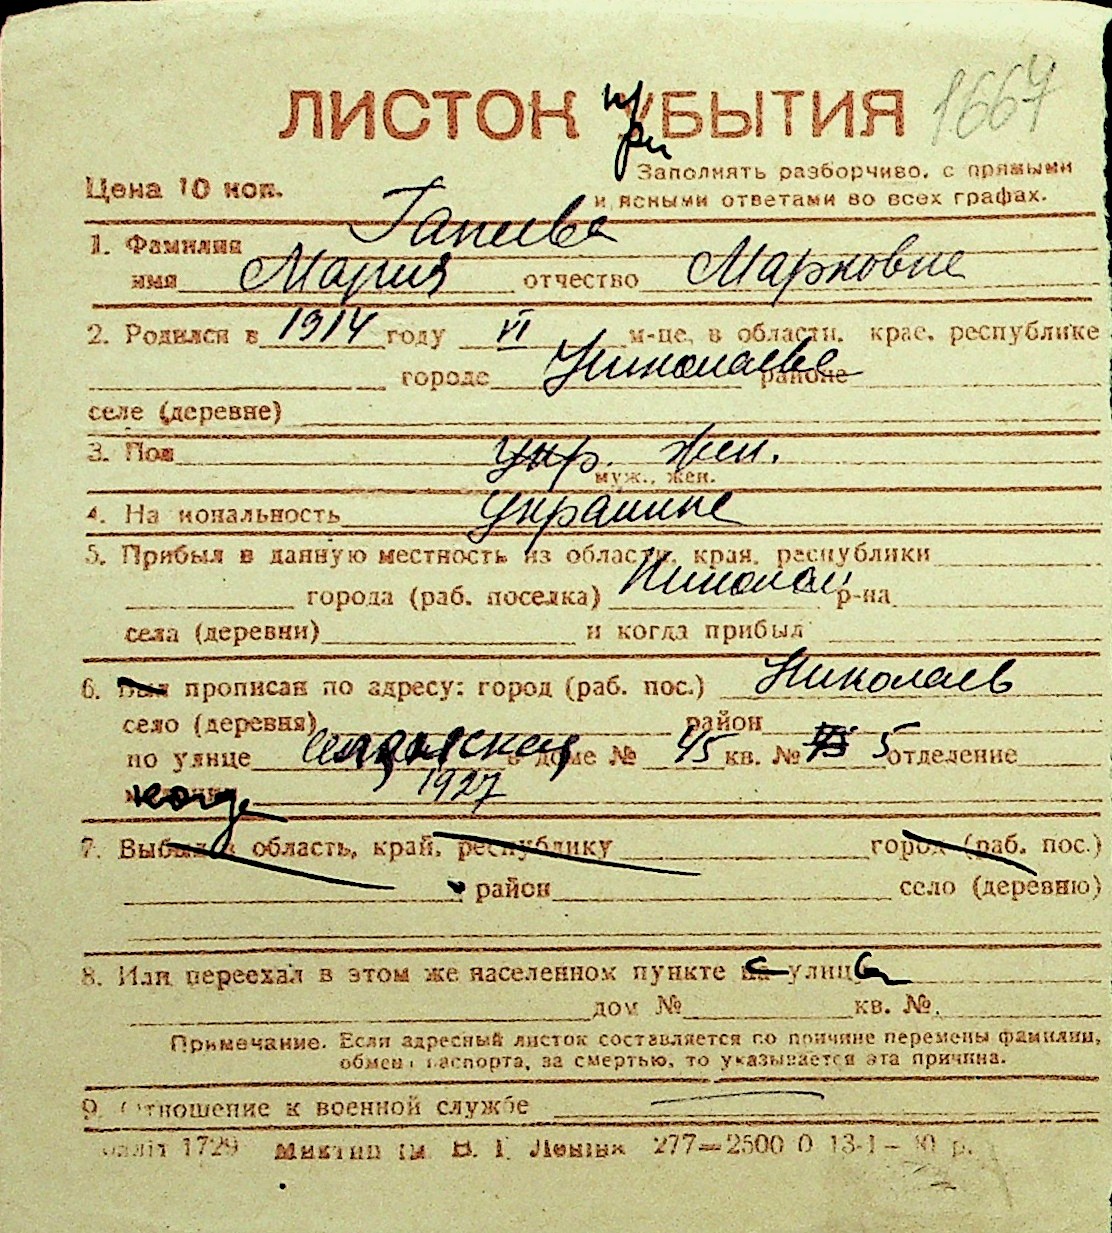 ЛИСТОК УБЫТИЯ 1667
при
Заполнять разборчиво, с прямыми
Цена 10 коп. и ясными ответами во всех графах.
1. Фамилия
имя Мария отчество Марковна
2. Родился в 1914 году VI м-це, в области, крае, республике
городе Николаеве районе
селе (деревне)
3. Пол укр. жен.
муж., жен.
4. Национальность украинка
5. Прибыл в данную местность из области, края, республики
города (раб. поселка) Николаев р-на
села (деревни) и когда прибыл
6. Был прописан по адресу: город (раб. пос.) Николаев
село (деревня) район
по улице в доме № 45 кв. № 5 отделение
когда 1927
7. Выбыл в область, край, республику город (раб. пос.)
район село (деревню)
8. Или переехал в этом же населенном пункте с улицы
дом № кв. №
Примечание. Если адресный листок составляется по причине перемены фамилии,
обмена паспорта, за смертью, то указывается эта причина.
9. Отношение к военной службе
1729 В. І. Леніна 277—2500 0 13-1-